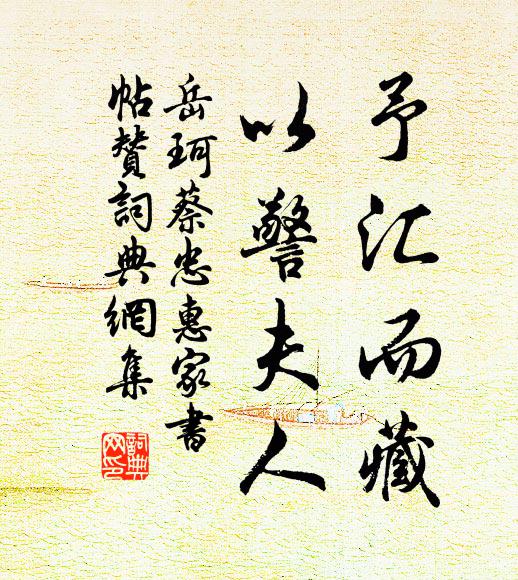 予汇而藏
以警夫人
岳珂蔡忠惠家書
帖贊詞典網集
詞典
网印